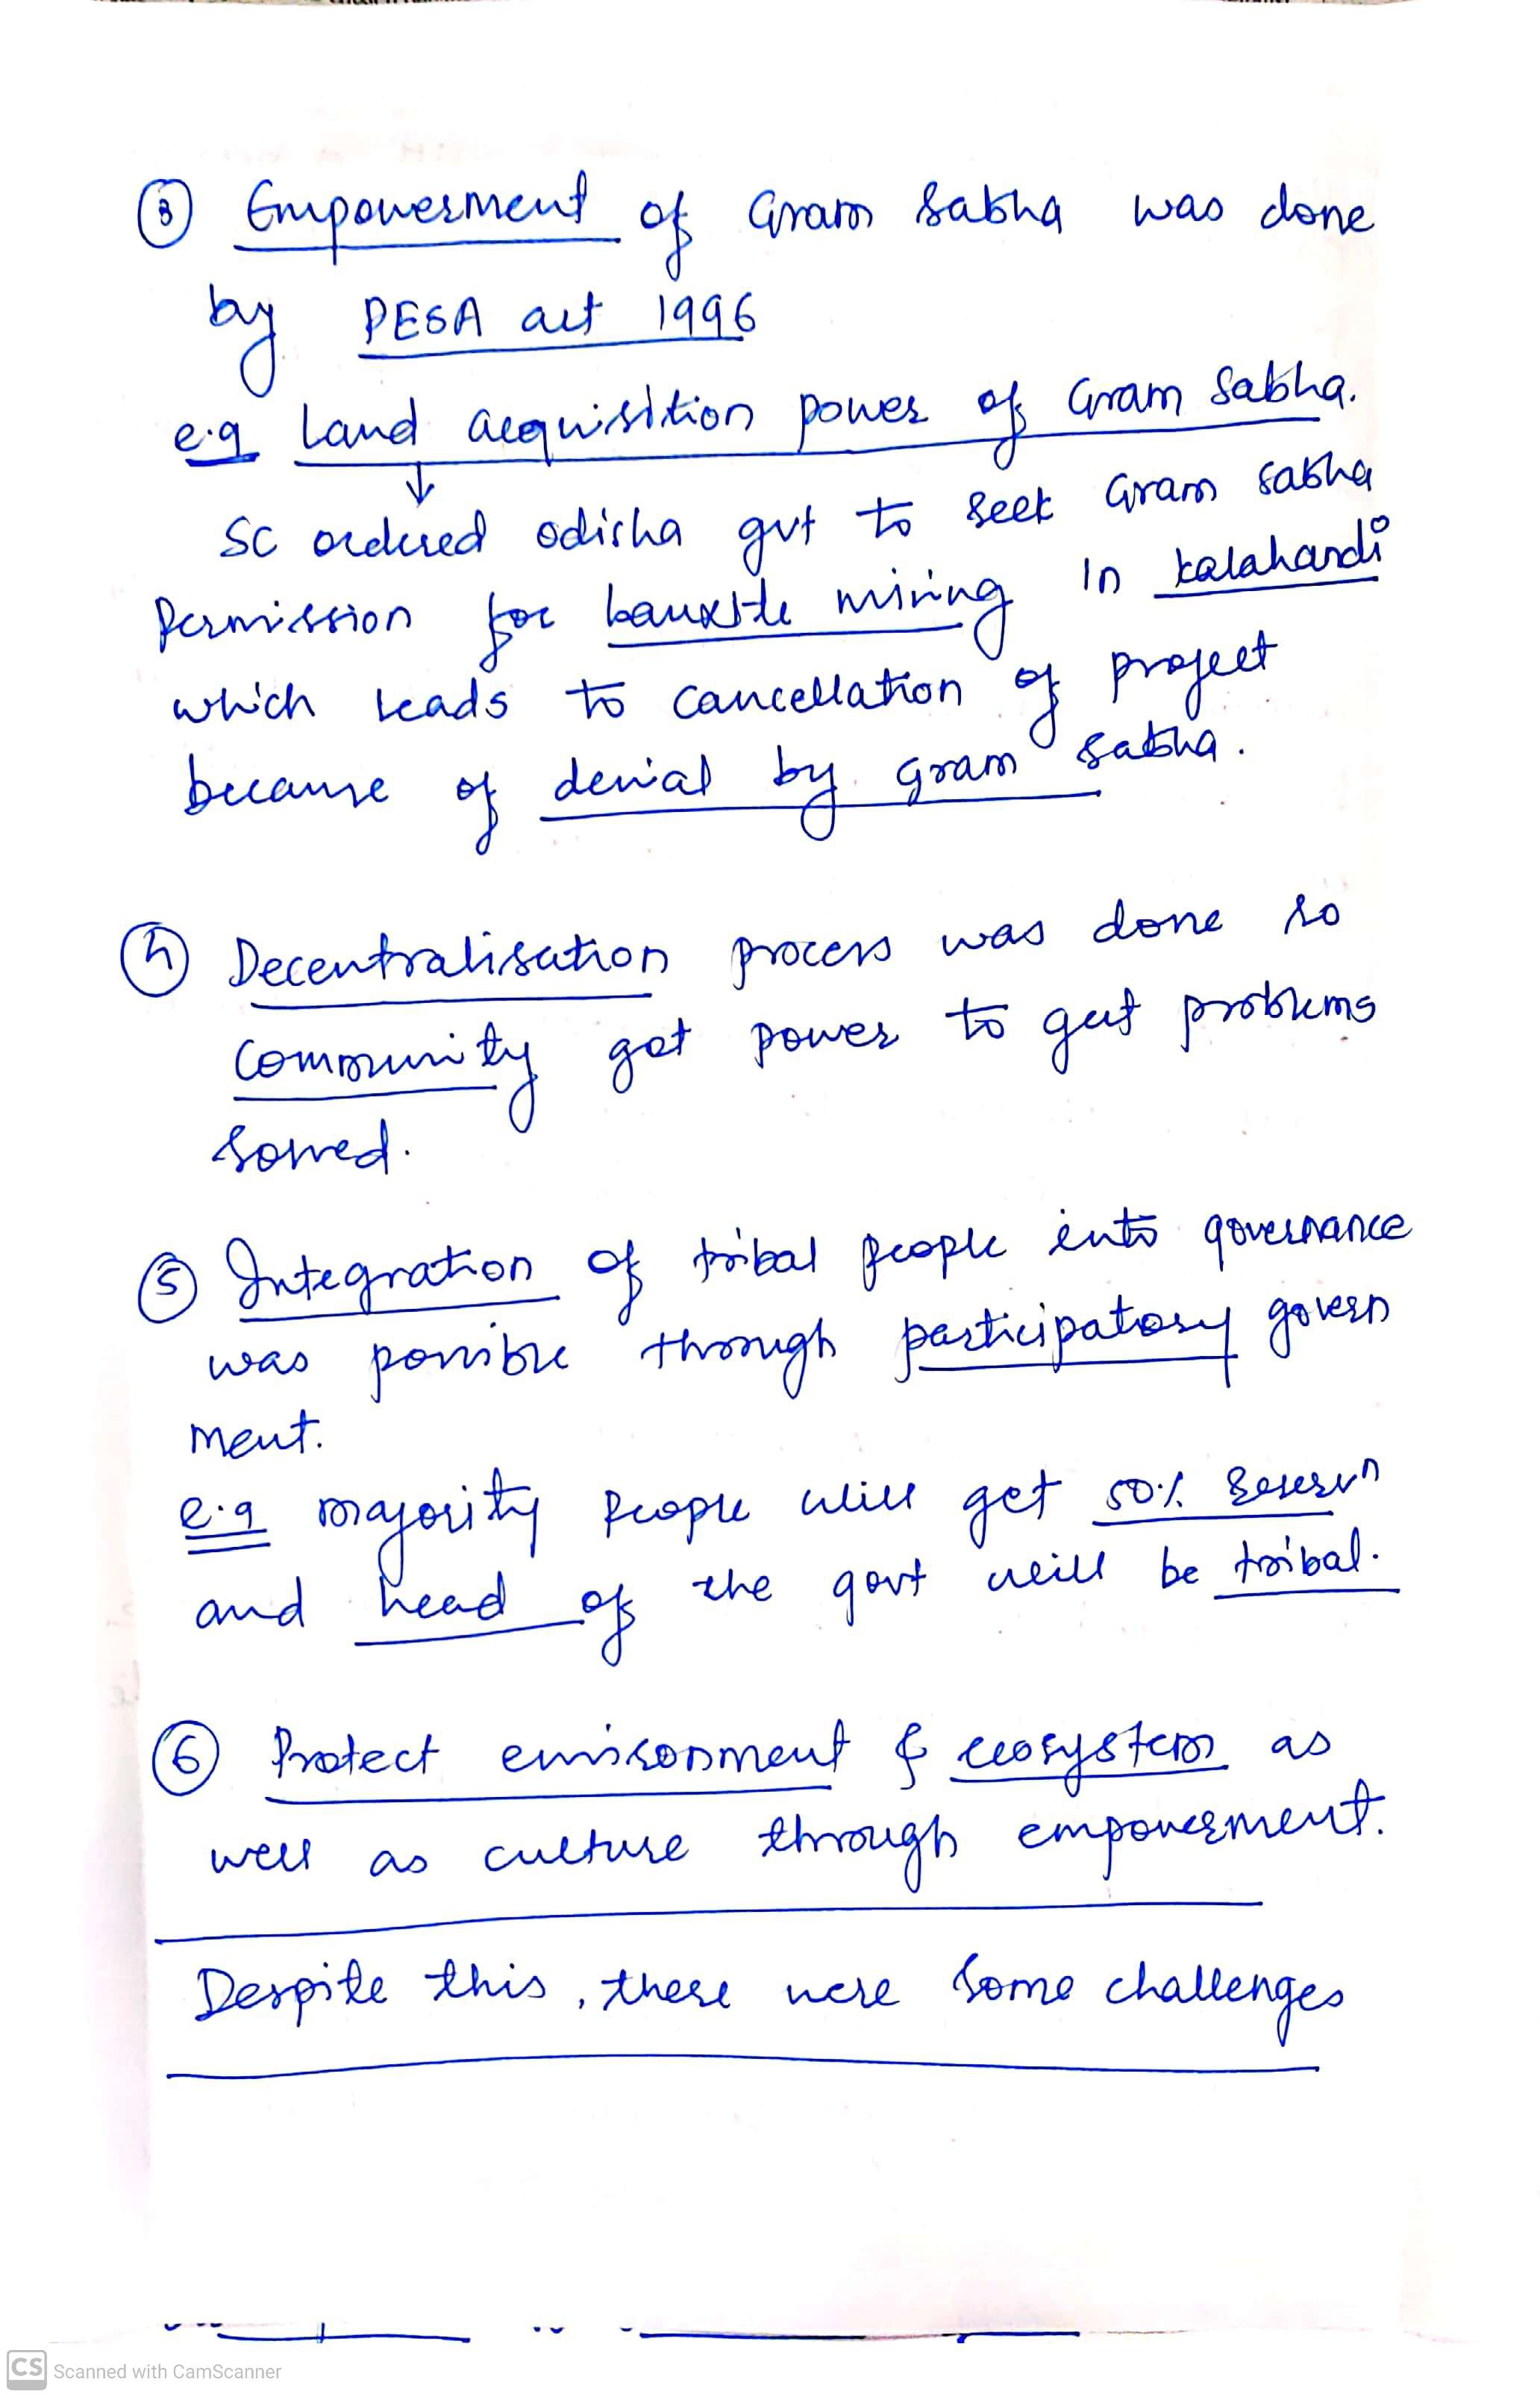 ③ Empowerment of Gram Sabha was done
by PESA act 1996
e.g Land acquisition power of Gram Sabha.
↓
SC ordered odisha gvt to seek Gram sabha
Permission for bauxite mining in kalahandi
which leads to cancellation of project
because of denial by gram sabha.
④ Decentralisation process was done so
community got power to get problems
solved.
⑤ Integration of tribal people into governance
was possible through participatory govern
ment.
e.g majority people will get 50% reservn
and head of the govt will be tribal.
⑥ Protect environment & ecosystem as
well as culture through empowerment.
Despite this, there were some challenges
CS Scanned with CamScanner